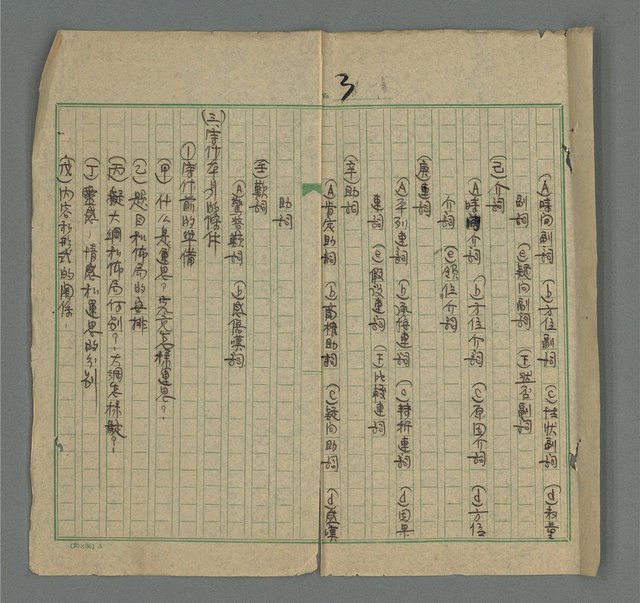 3
Ⓐ時间副詞 ⓑ方位副詞 ⓒ性狀副詞 ⓓ数量
副詞 ⓔ疑问副詞 ⓕ然否副詞
㊁介詞
Ⓐ時间介詞 ⓑ方位介詞 ⓒ原因介詞 ⓓ方位
介詞 ⓔ領位介詞
庚連詞
Ⓐ平列連詞 ⓑ承接連詞 ⓒ轉折連詞 ⓓ因果
連詞 ⓔ假设連詞 ⓕ比較連詞
辛助詞
Ⓐ肯定助詞 ⓑ商榷助詞 ⓒ疑问助詞 ⓓ感嘆
助詞
壬歎詞
Ⓐ驚答歎詞 ⓑ感傷嘆詞
(三)寫作本身的條件
①寫作前的準備
㊙甲什么是運思？究竟怎樣運思？
乙題目和佈局的安排
丙擬大綱和佈局何别？大綱怎樣擬？
丁靈感，情感和運思的分别
戊内容和形式的關係，
(20×20)